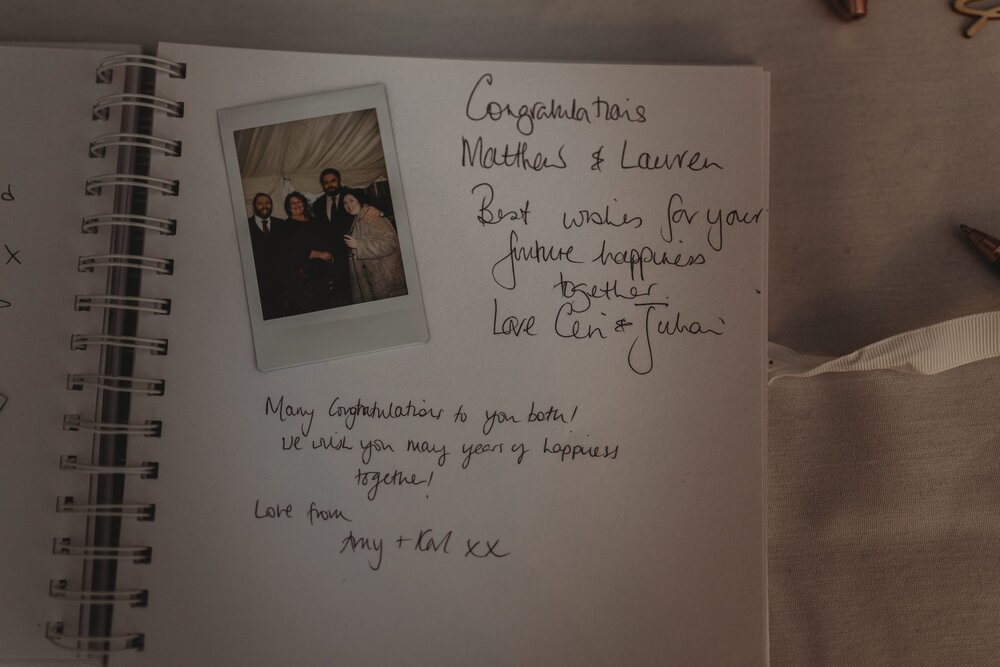 Congratulations
Matthew & Lauren
Best wishes for your
future happiness
together.
Love Ceri & Julian
Many Congratulations to you both!
we wish you many years of happiness
together!
Love from
Amy + Karl xx
d
x